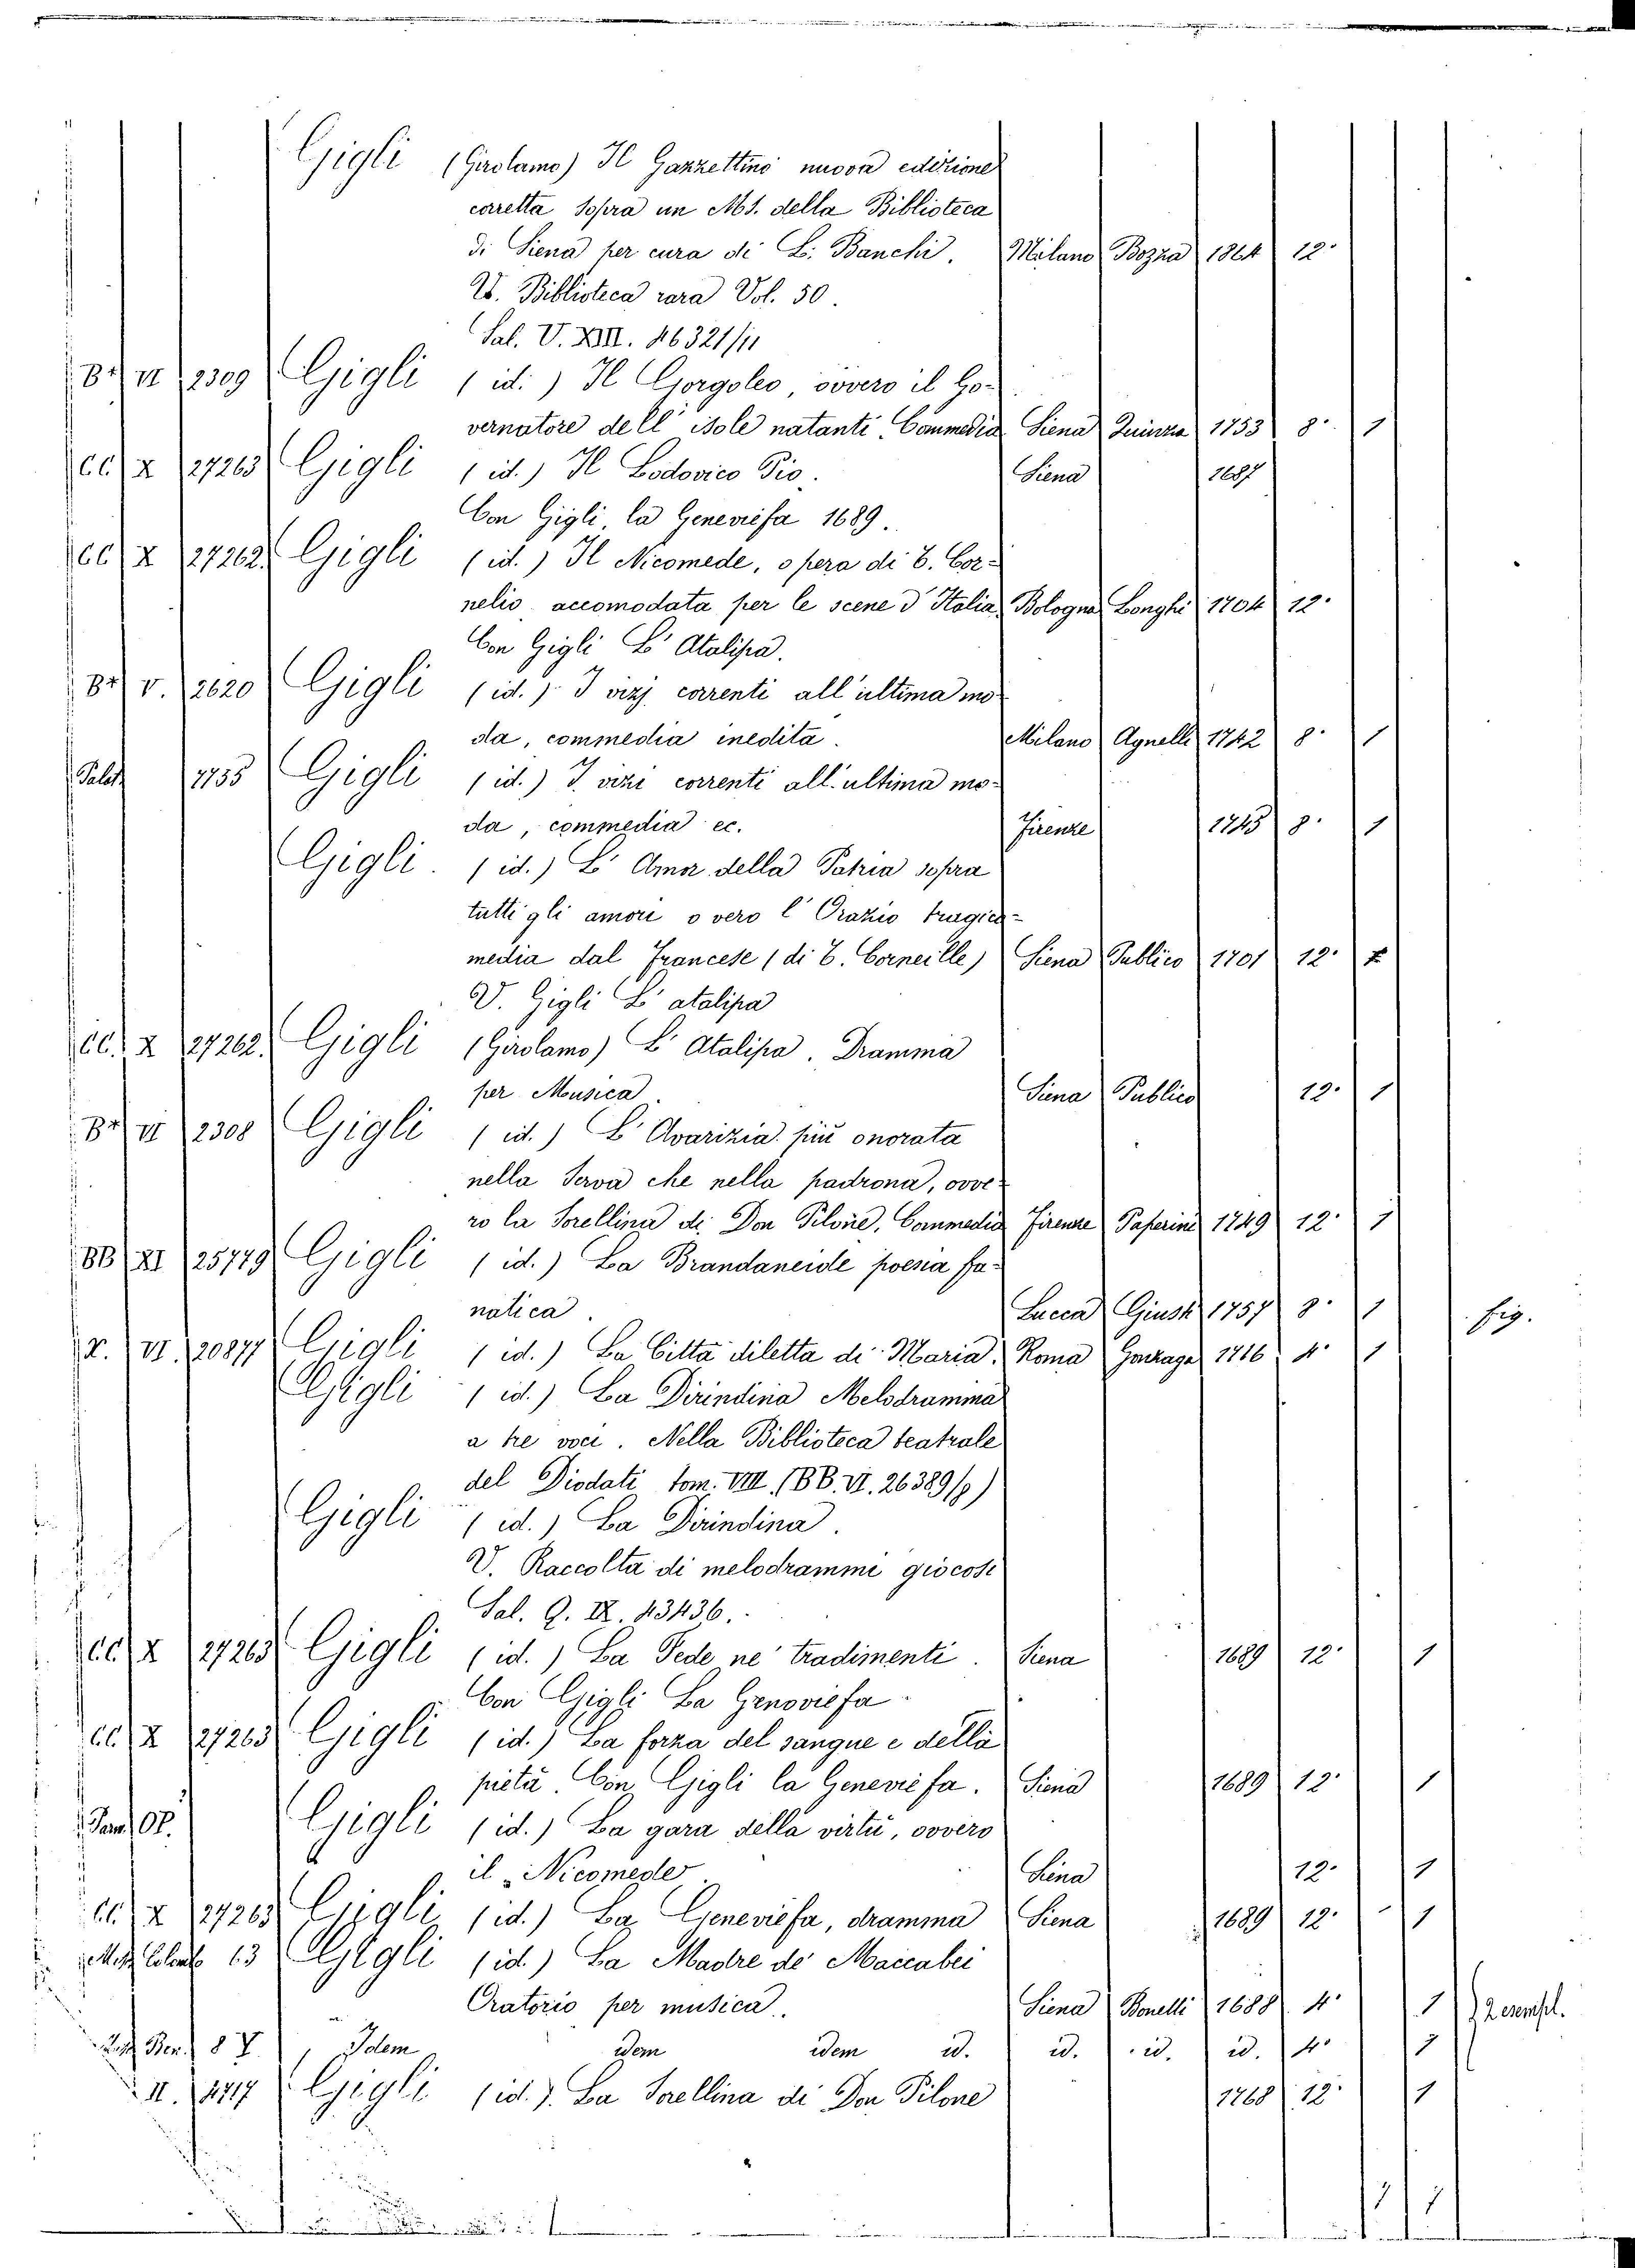 Gigli (Girolamo) Il Gazzettino nuova edizione
corretta sopra un Ms. della Biblioteca
di Siena per cura di L. Banchi. Milano Bozza 1864 12°
V. Biblioteca rara Vol. 50.
Sal. V. XIII. 46321/11
B.a VI 2309 Gigli (id.) Il Gorgoleo, ovvero il Go-
vernatore dell' isole natanti. Commedia Siena Quinza 1753 8° 1
CC X 27263 Gigli (id.) Il Lodovico Pio. Siena 1687
Con Gigli, la Geneviefa 1689.
CC X 27262 Gigli (id.) Il Nicomede, opera di T. Cor-
nelio accomodata per le scene d' Italia. Bologna Longhi 1704 12°
Con Gigli L' Atalipa.
B.a V. 2620 Gigli (id.) I vizj correnti all' ultima mo
da, commedia inedita. Milano Agnelli 1742 8° 1
Palat 1735 Gigli (id.) I vizi correnti all' ultima mo-
da, commedia ec. Firenze 1745 8° 1
Gigli. (id.) L' Amor della Patria sopra
tutti gli amori overo l' Orazio tragico-
media dal Francese (di T. Corneille) Siena Publico 1701 12°
V. Gigli L' atalipa
CC. X 27262. Gigli (Girolamo) L' Atalipa. Dramma
per Musica. Siena Publico 12° 1
B.a VI 2308 Gigli (id.) L' Avarizia più onorata
nella Serva che nella padrona, ovve-
ro la Sorellina di Don Pilone, Commedia Firenze Paperini 1749 12° 1
BB XI 25779 Gigli (id.) La Brandaneide poesia fa-
natica. Lucca Giusti 1757 8° 1 fig.
X. VI. 20877 Gigli (id.) La Città diletta di Maria. Roma Gonzaga 1716 4° 1
Gigli (id.) La Dirindina Melodramma
a tre voci. Nella Biblioteca teatrale
del Diodati tom. VIII. (BB. VI. 26389/8)
Gigli (id.) La Dirindina.
V. Raccolta di melodrammi giocosi
Sal. Q. IX. 43436.
CC X 27263 Gigli (id.) La Fede ne' tradimenti. Siena 1689 12° 1
Con Gigli La Genoviefa.
CC X 27263 Gigli (id.) La forza del sangue e della
pietà. Con Gigli la Genevie fa. Siena 1689 12° 1
Gigli (id.) La gara della virtù, ovvero
il Nicomede. Siena 12° 1
CC. X 27263 Gigli (id.) La Geneviefa, dramma Siena 1689 12° 1
13 Gigli (id.) La Madre de' Maccabei
Oratorio per musica. Siena Bonelli 1688 4° 1 2 esempl.
Idem idem idem id. id. id. id. 4° 1
II. 4717 Gigli (id.). La Sorellina di Don Pilone 1768 12° 1